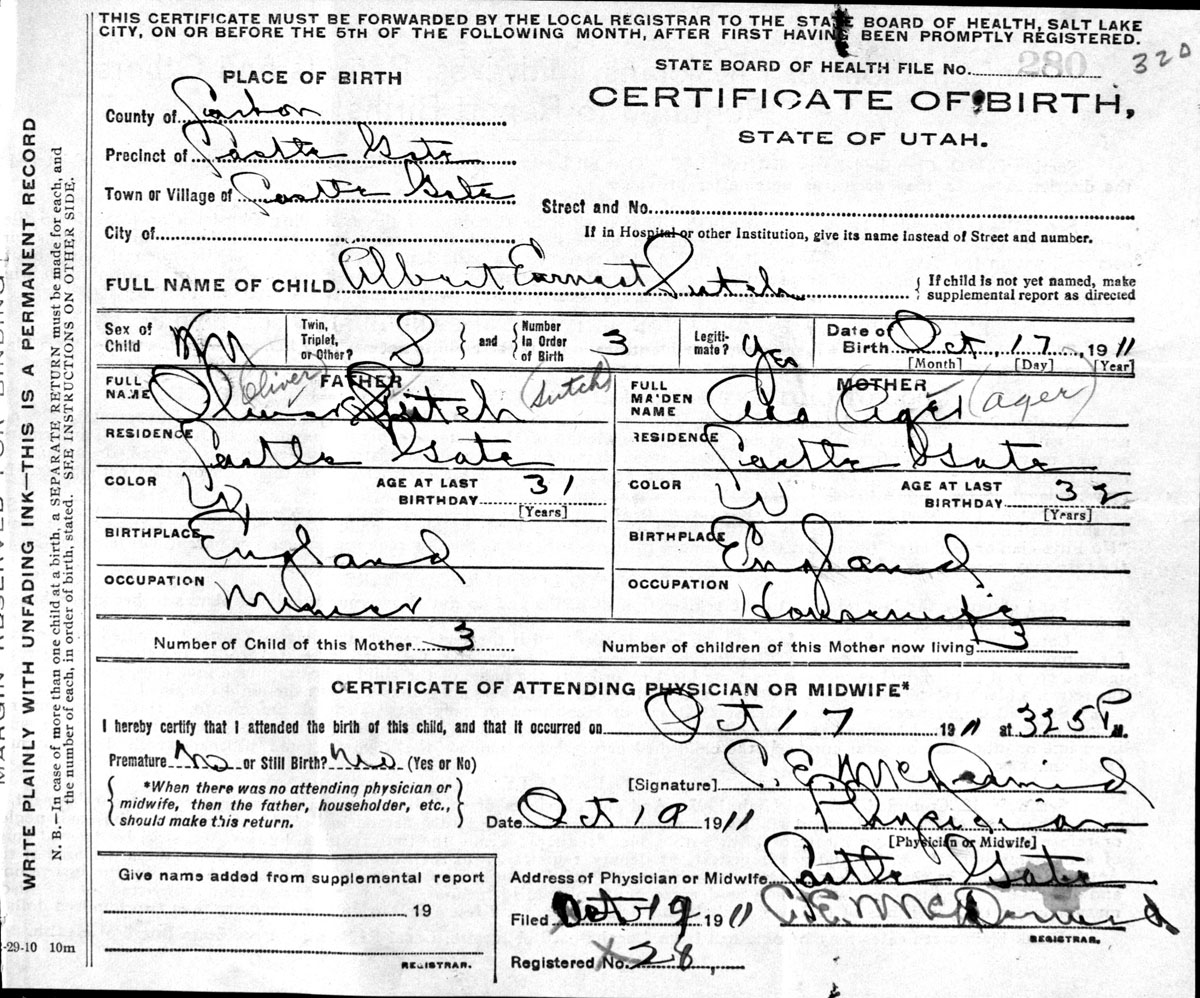 THIS CERTIFICATE MUST BE FORWARDED BY THE LOCAL REGISTRAR TO THE STATE BOARD OF HEALTH, SALT LAKE
CITY, ON OR BEFORE THE 5TH OF THE FOLLOWING MONTH, AFTER FIRST HAVING BEEN PROMPTLY REGISTERED.
PLACE OF BIRTH
STATE BOARD OF HEALTH FILE No. 280 320
County of Carbon
CERTIFICATE OF BIRTH,
STATE OF UTAH.
Precinct of Castle Gate
Town or Village of Castle Gate
Street and No.
City of
If in Hospital or other Institution, give its name instead of Street and number.
FULL NAME OF CHILD Albert Earnest Sutch
{ If child is not yet named, make
supplemental report as directed
Sex of Child M Twin, Triplet, or Other? } and { Number In Order of Birth 3 Legiti-mate? Yes Date of Birth Oct, 17, 1911
[Month] [Day] [Year]
FULL NAME FATHER Oliver Sutch (Oliver) (Sutch)
FULL MAIDEN NAME MOTHER Ager (ager)
RESIDENCE Castle Gate
RESIDENCE Castle Gate
COLOR W AGE AT LAST BIRTHDAY 31 [Years]
COLOR W AGE AT LAST BIRTHDAY 32 [Years]
BIRTHPLACE England
BIRTHPLACE England
OCCUPATION Miner
OCCUPATION Housewife
Number of Child of this Mother 3
Number of children of this Mother now living 3
CERTIFICATE OF ATTENDING PHYSICIAN OR MIDWIFE*
I hereby certify that I attended the birth of this child, and that it occurred on Oct 17 1911 at 325 P M.
Premature No or Still Birth? No (Yes or No)
[Signature] C. E. McDermid
{ *When there was no attending physician or
midwife, then the father, householder, etc.,
should make this return. }
Date Oct 19 1911 Physician
[Physician or Midwife]
Give name added from supplemental report
Address of Physician or Midwife Castle Gate
19
Filed Oct 19 1911 C. E. McDermid
REGISTRAR.
REGISTRAR.
Registered No. 28
-29-10 10m
MARGIN RESERVED FOR BINDING
WRITE PLAINLY WITH UNFADING INK—THIS IS A PERMANENT RECORD
N. B.—In case of more than one child at a birth, a SEPARATE RETURN must be made for each, and
the number of each, in order of birth, stated. SEE INSTRUCTIONS ON OTHER SIDE.